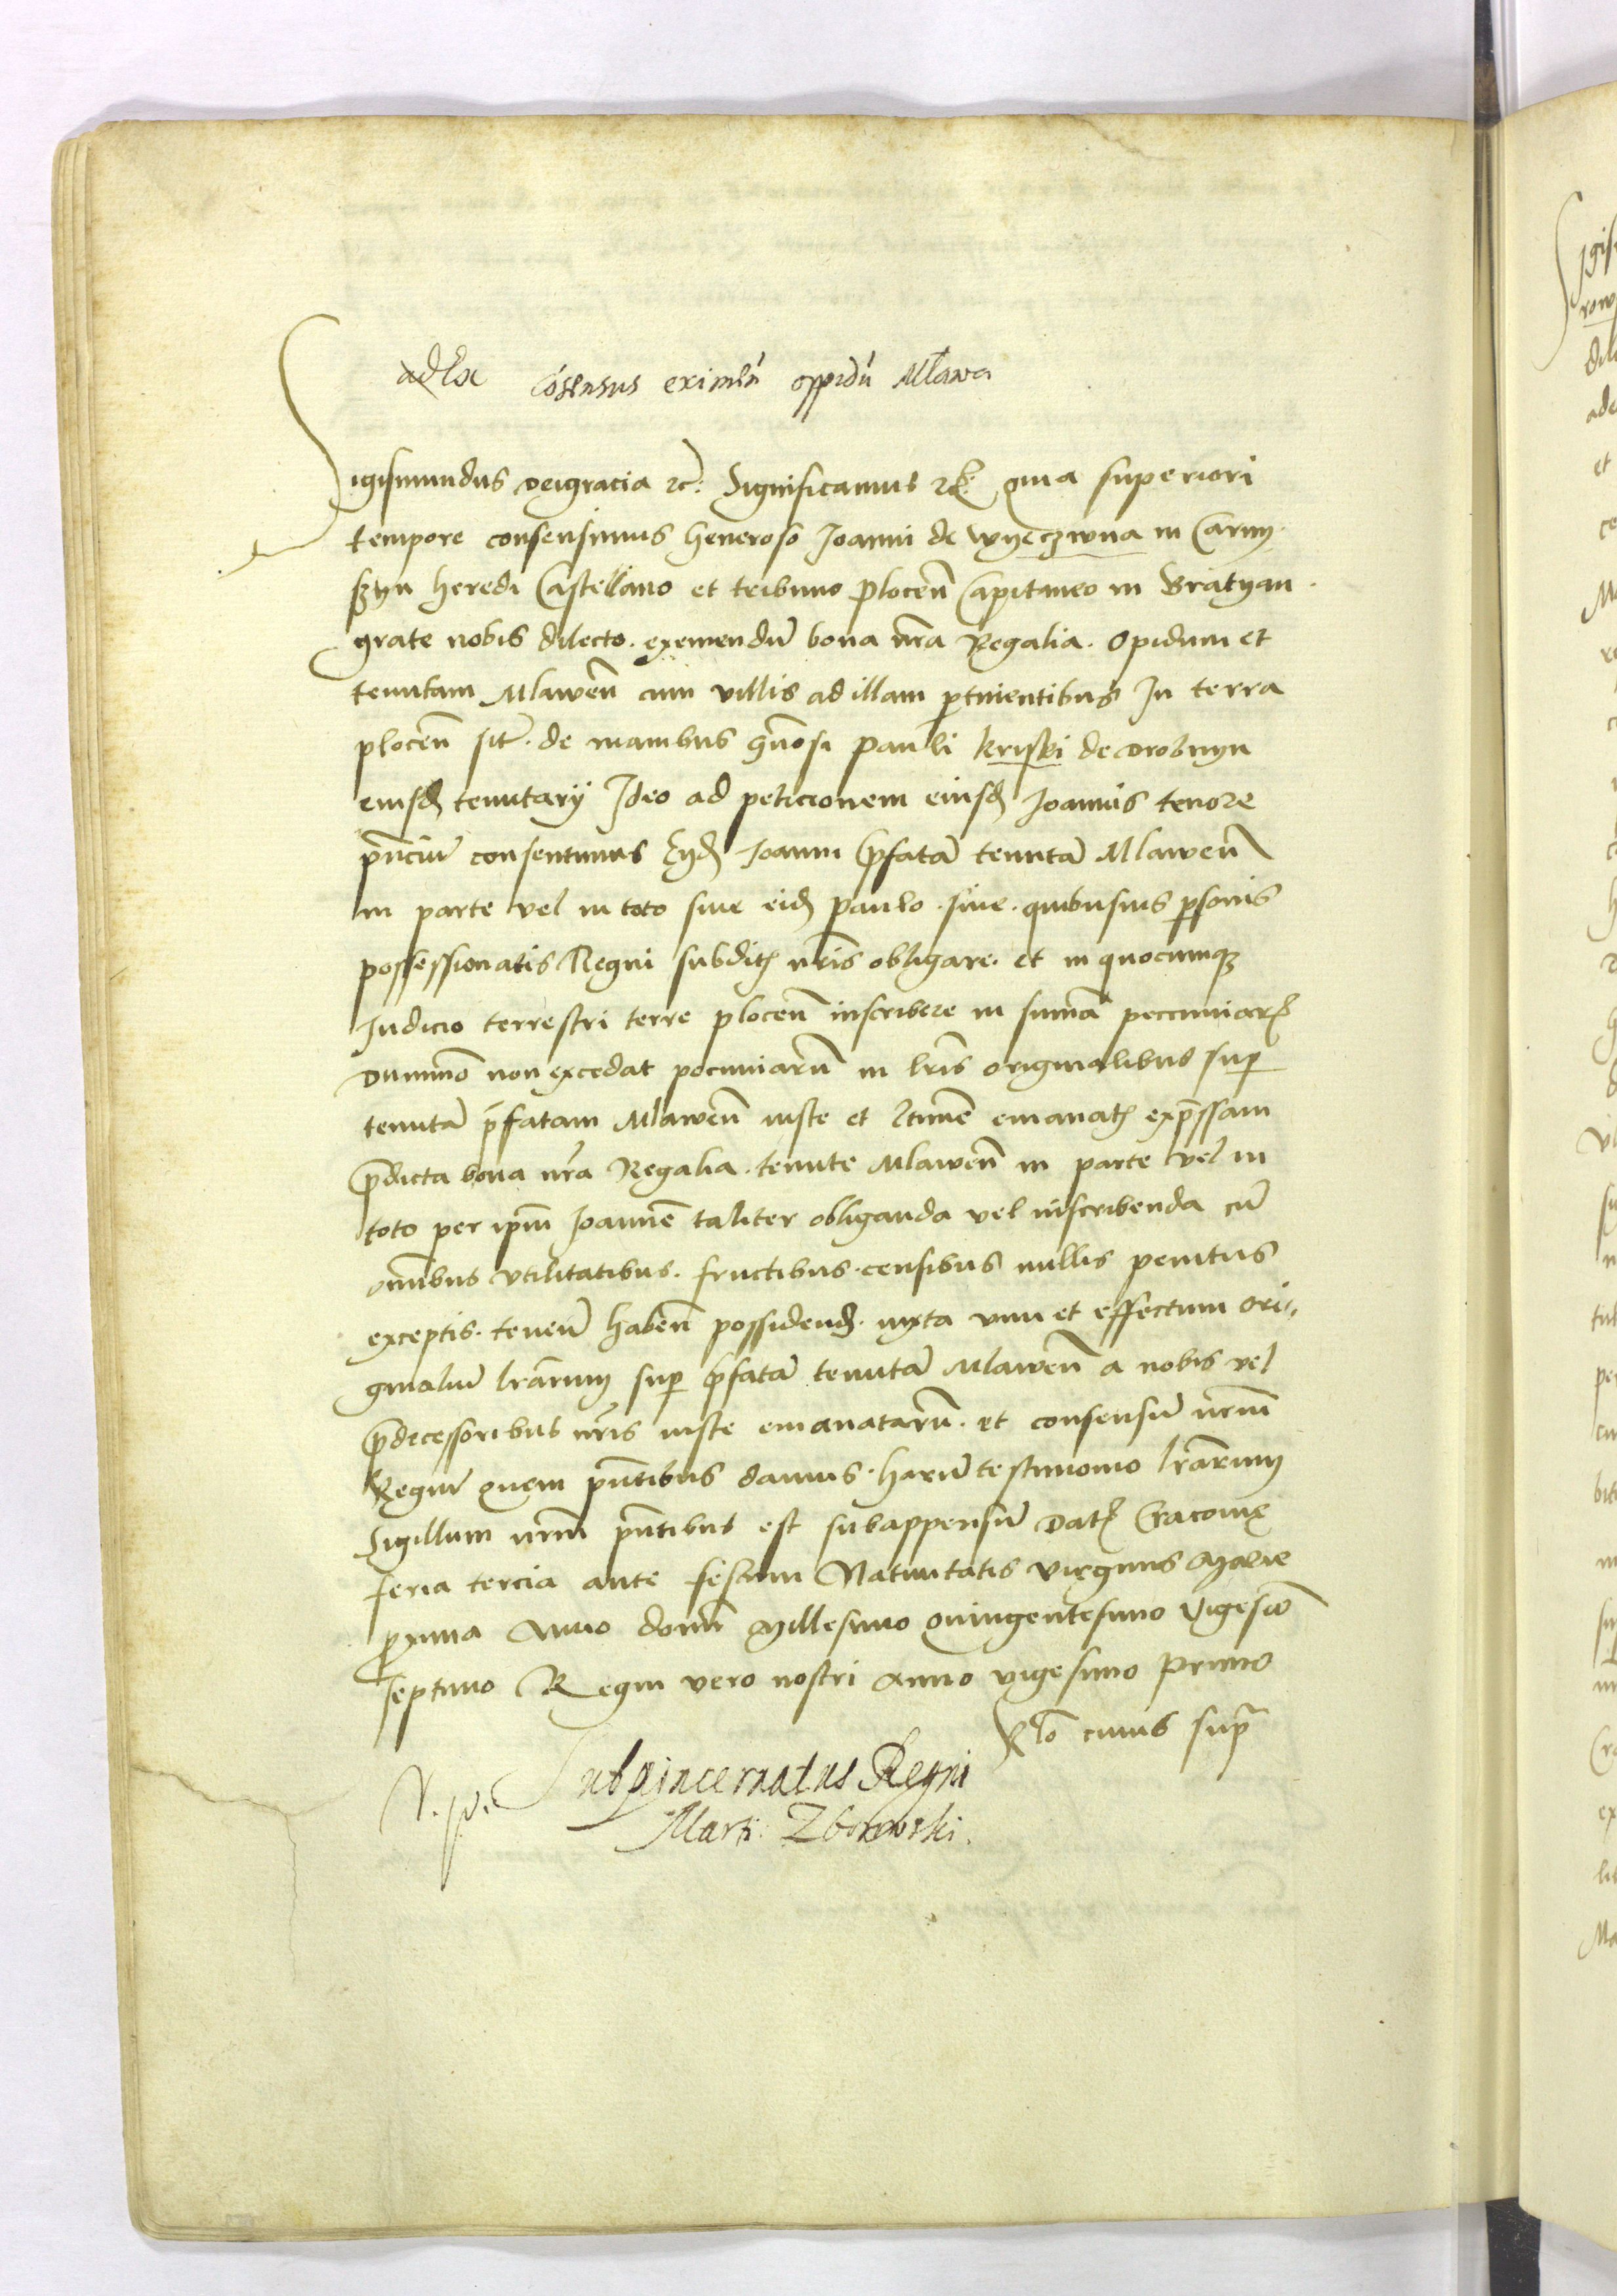 Cōsensus eximēn̄ oppidū Mlawa
Sigismundus Dei gracia etc: Significamus etc. quia superiori
tempore consensimus Generoso Joanni de Wyeczwna in Carny-
schyn heredi Castellano et tribuno plocen̄ Capitaneo in Bratyan.
grate nobis dilecto. exemendū bona nr̄a Regalia. Opidum et
tenutam Mlawen̄ cum villis ad illam ꝑtinentibus In terra
plocen̄ sit̄. de manibus gn̄osi pauli kriski de Drobnyn
eiusd̄ tenutarij Ideo ad peticionem eiusd̄ Joannis tenore
pn̄ciū consentimus Eyd̄ Joanni p̄fatā tenutā Mlawen̄
in parte vel in toto siue eid̄ paulo. siue. quibusuis ꝑsonis
possessionatis Regni subdit̄ nr̄is obligare. et in quocumqꝫ
Judicio terrestri terre plocen̄ inscribere in sum̄a peccuniar̄
Dummō non excedat pecuniarū in lr̄is originalibus suꝑ
tenutā p̄fatam Mlawen̄ iuste et l̄time emanat̄ exp̄ssam
p̄dicta bona nr̄a Regalia. tenute Mlawen̄ in parte vel in
toto per ipm̄ Joannē taliter obliganda vel inscribenda cū
om̄ibus vtilitatibus. fructibus. censibus nullis penitus
exceptis. tenen̄ haben̄ possidend̄. iuxta vim et effectum ori-
ginaliū lr̄arum suꝑ p̄fatā tenutā Mlawen̄ a nobis vel
p̄decessoribus nr̄is iuste emanatarū. et consensū nr̄um
Regiū quem pn̄tibus damus. harū testimonio lr̄arum
Sigillum nr̄m pn̄tibus est subappensū Dat̄ Cracovię
feria tercia ante festum Natiuitatis virginis Marie
ꝓxima Anno domī Millesimo quingentesimo vigesīo
septimo Regni vero nostri anno vigesimo primo
Rl̄o cuius sup̄
V. p. Subpincernatus Regni
Marti: Zborowski.